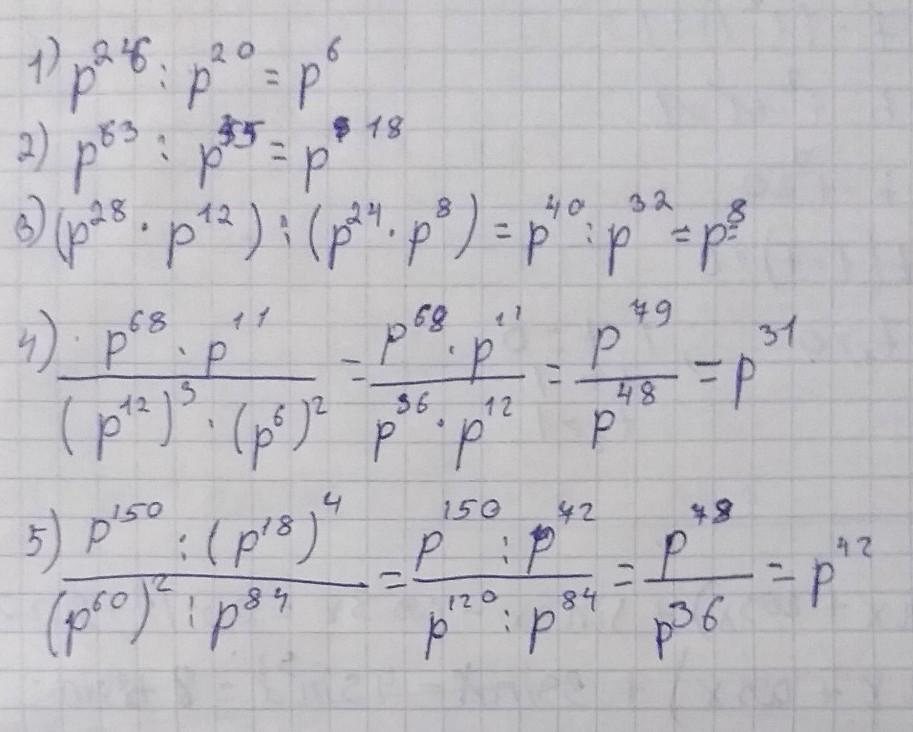 1) p²⁶ : p²⁰ = p⁶
2) p⁵³ : p³⁵ = p¹⁸
3) (p²⁸ · p¹²) : (p²⁴ · p⁸) = p⁴⁰ : p³² = p⁸
4) (p⁶⁸ · p¹¹) / ((p¹²)³ · (p⁶)²) = (p⁶⁸ · p¹¹) / (p³⁶ · p¹²) = p⁷⁹ / p⁴⁸ = p³¹
5) (p¹⁵⁰ : (p¹⁸)⁴) / ((p⁶⁰)² : p⁸⁴) = (p¹⁵⁰ : p⁷²) / (p¹²⁰ : p⁸⁴) = p⁷⁸ / p³⁶ = p⁴²